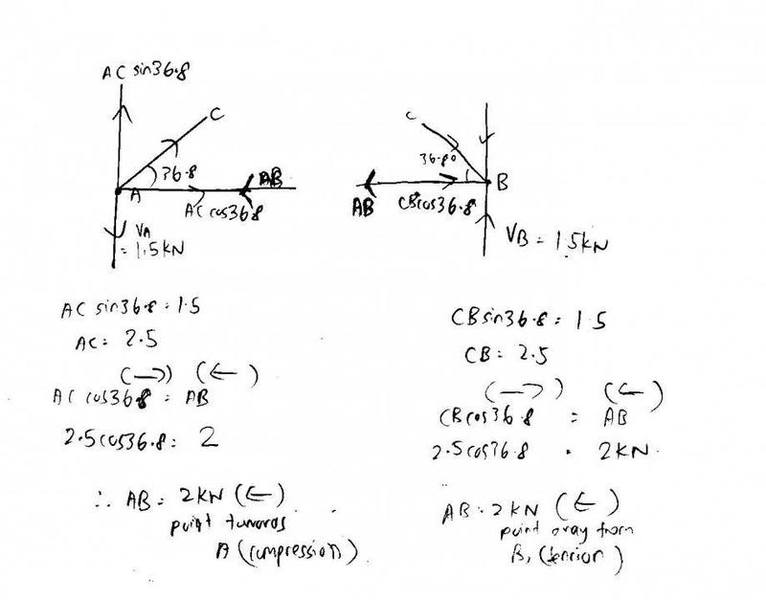 AC sin36.8
C
36.8
AB
A
AC cos36.8
VA
= 1.5kN
C
36.8°
B
AB
CBcos36.8
VB = 1.5kN
AC sin36.8 = 1.5
AC = 2.5
(→) (←)
AC cos36.8 = AB
2.5cos36.8 = 2
∴ AB = 2KN (←)
point towards
A (compression)
CBsin36.8 = 1.5
CB = 2.5
(→) (←)
CBcos36.8 = AB
2.5cos36.8 = 2KN
AB = 2KN (←)
point away from
B, (tension)